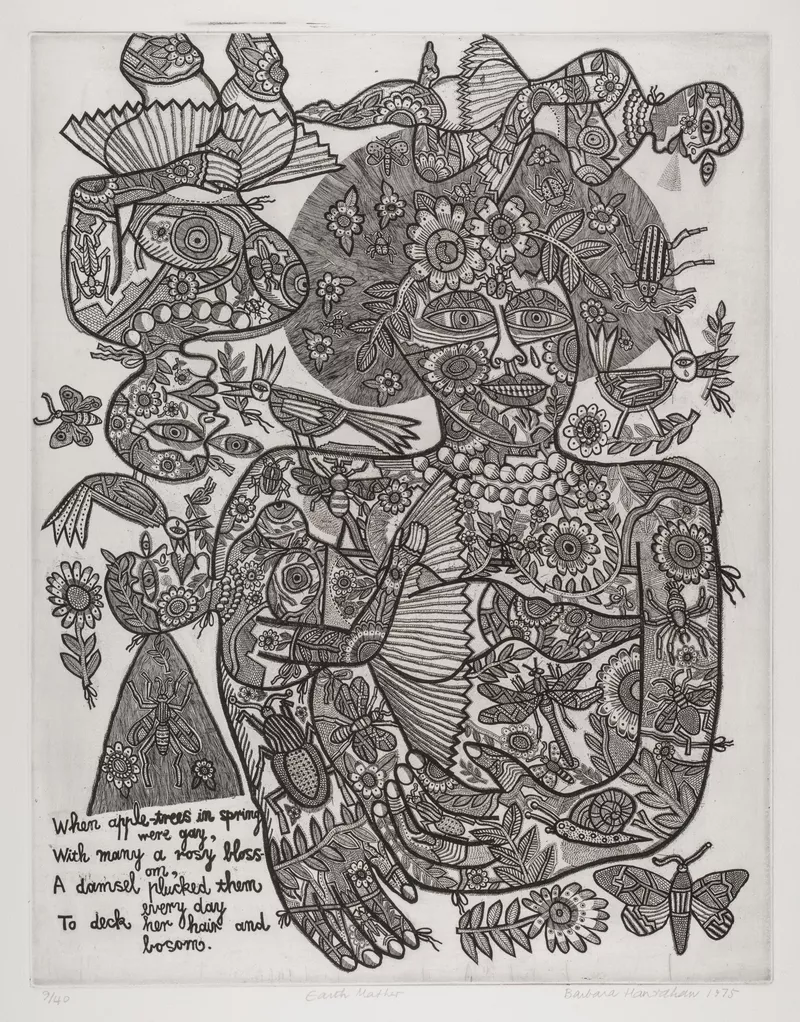 When apple-trees in spring
were gay,
With many a rosy bloss-
om,
A damsel plucked them
every day
To deck her hair and
bosom.
9/40 Earth Mother Barbara Hanrahan 1975